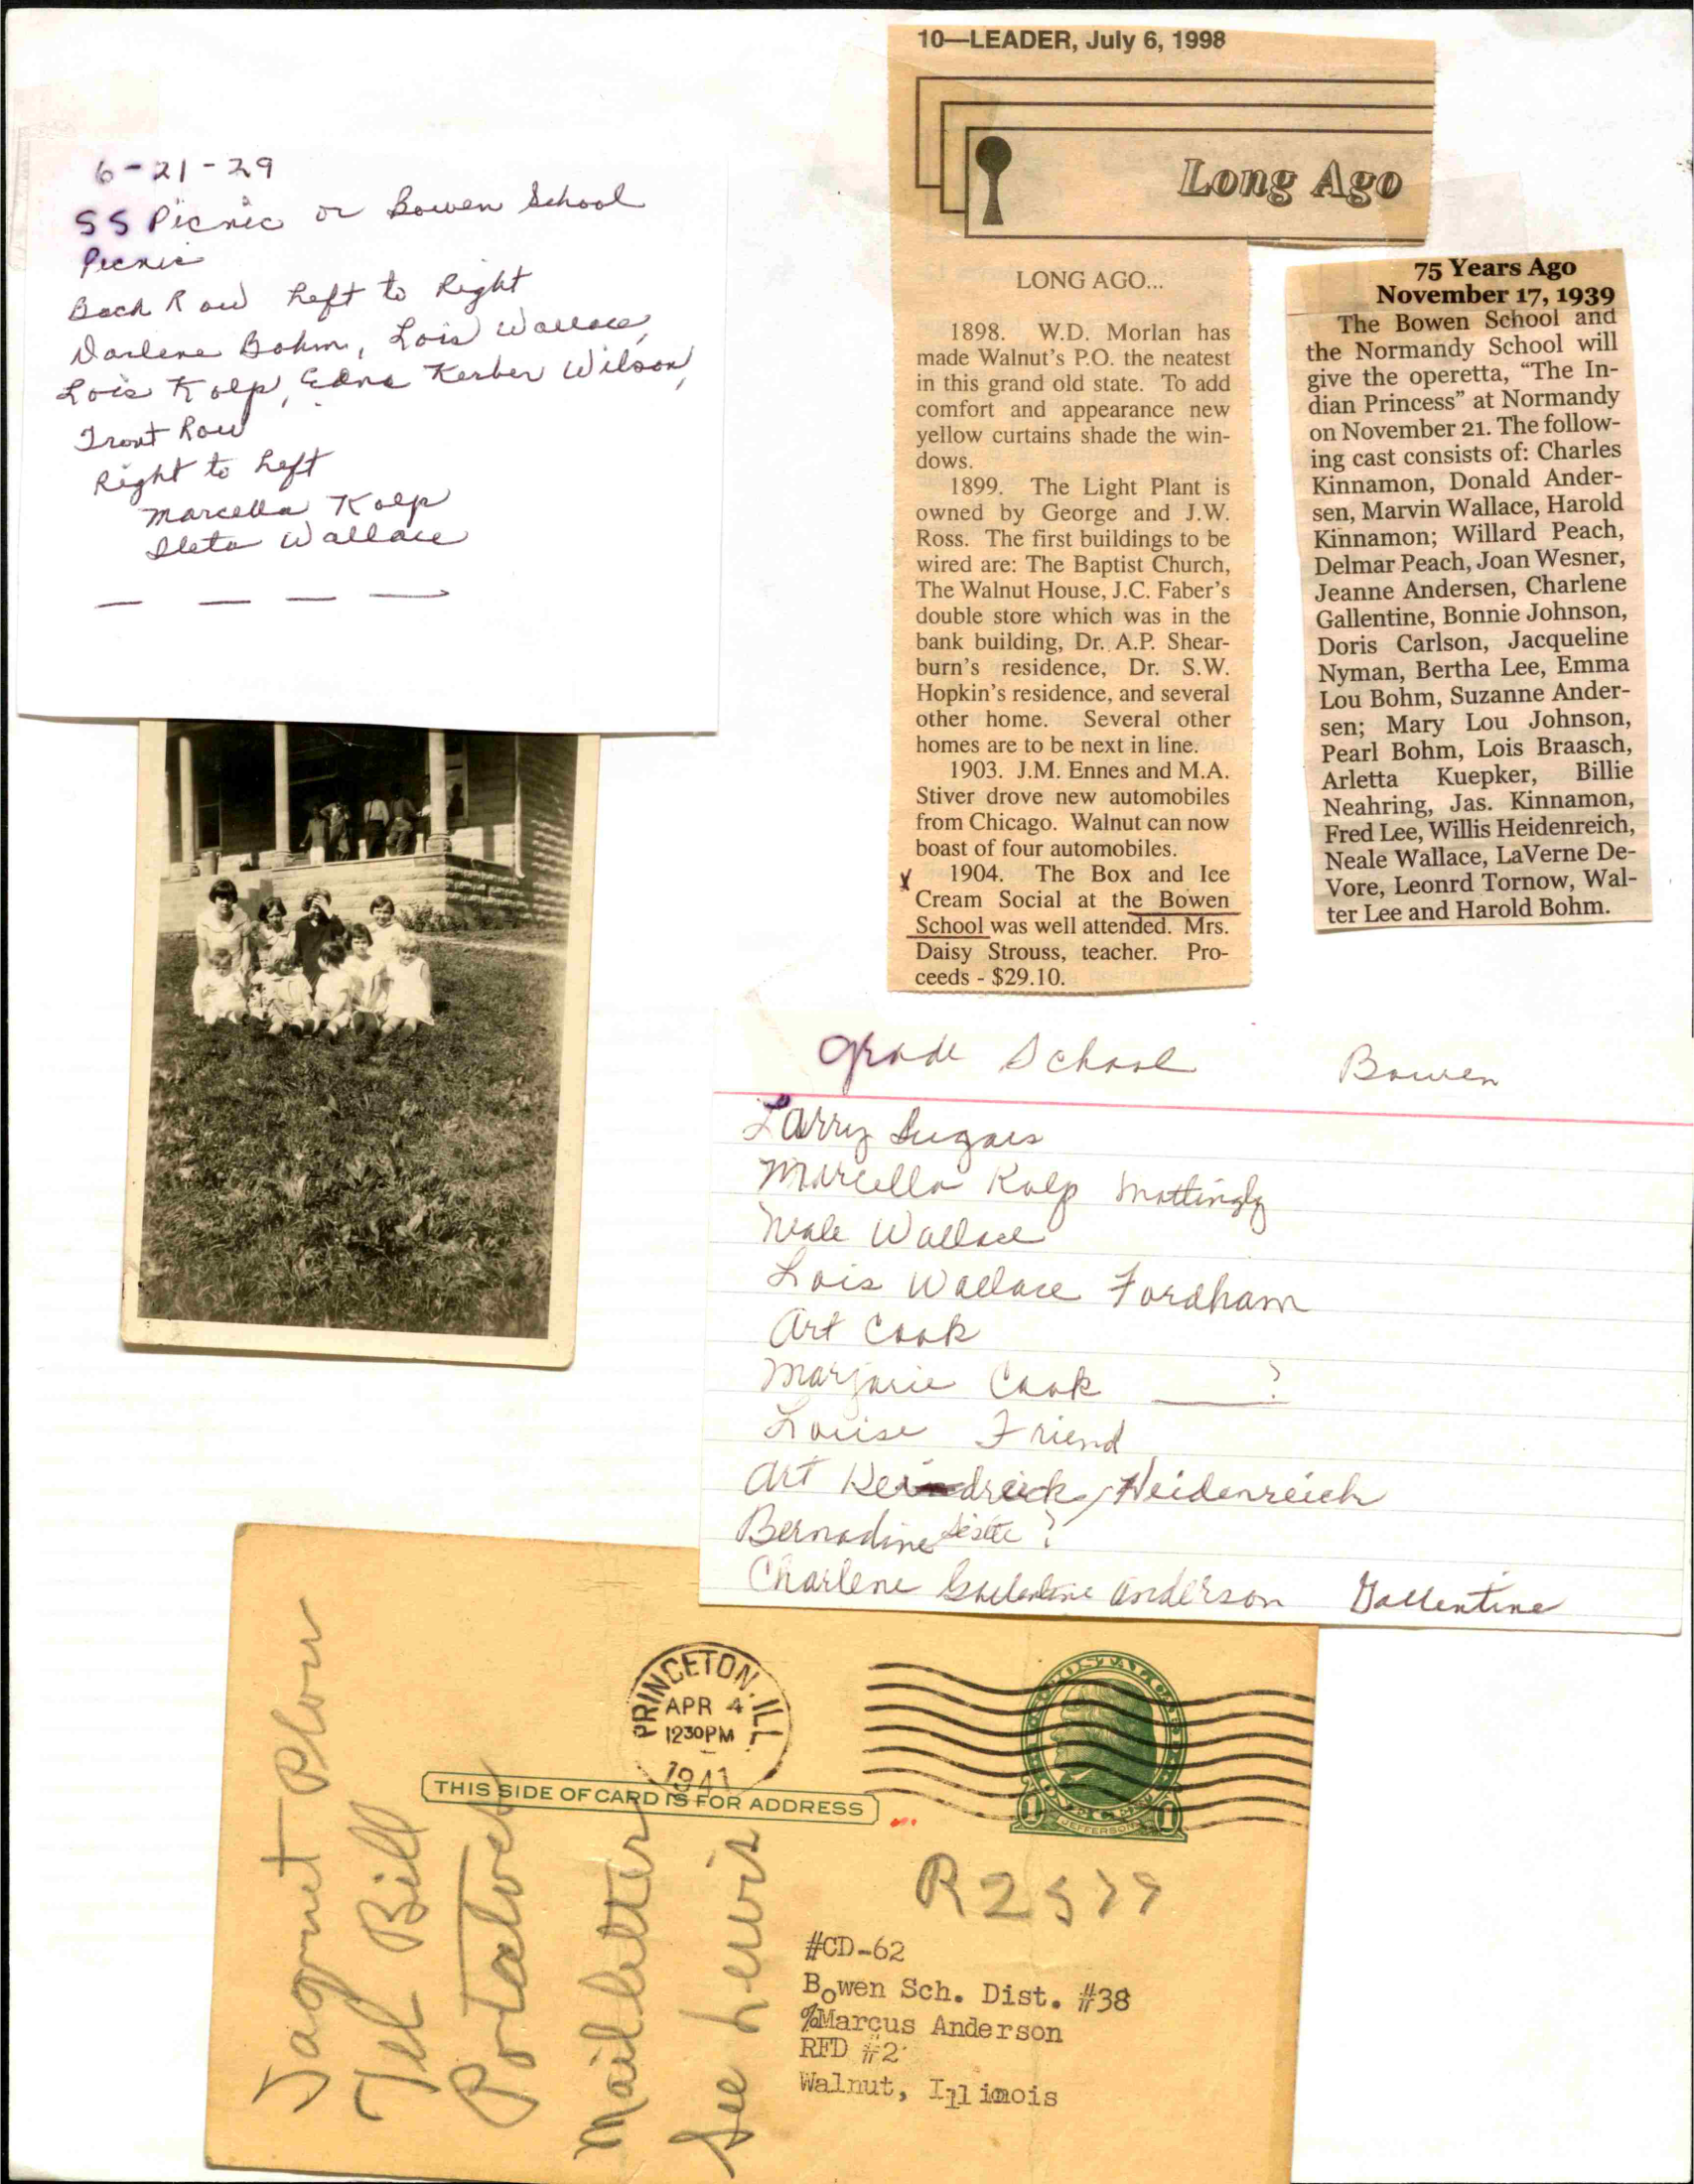 6-21-29
SS Picnic or Bowen School
Picnic
Back Row Left to Right
Darlene Bohm, Lois Wallace,
Lois Kolp, Edna Kerber Wilson,
Front Row
Right to Left
Marcella Kolp
Ileta Wallace
10—LEADER, July 6, 1998
Long Ago
LONG AGO...
1898. W.D. Morlan has
made Walnut's P.O. the neatest
in this grand old state. To add
comfort and appearance new
yellow curtains shade the win-
dows.
1899. The Light Plant is
owned by George and J.W.
Ross. The first buildings to be
wired are: The Baptist Church,
The Walnut House, J.C. Faber's
double store which was in the
bank building, Dr. A.P. Shear-
burn's residence, Dr. S.W.
Hopkin's residence, and several
other home. Several other
homes are to be next in line.
1903. J.M. Ennes and M.A.
Stiver drove new automobiles
from Chicago. Walnut can now
boast of four automobiles.
x 1904. The Box and Ice
Cream Social at the Bowen
School was well attended. Mrs.
Daisy Strouss, teacher. Pro-
ceeds - $29.10.
75 Years Ago
November 17, 1939
The Bowen School and
the Normandy School will
give the operetta, “The In-
dian Princess” at Normandy
on November 21. The follow-
ing cast consists of: Charles
Kinnamon, Donald Ander-
sen, Marvin Wallace, Harold
Kinnamon; Willard Peach,
Delmar Peach, Joan Wesner,
Jeanne Andersen, Charlene
Gallentine, Bonnie Johnson,
Doris Carlson, Jacqueline
Nyman, Bertha Lee, Emma
Lou Bohm, Suzanne Ander-
sen; Mary Lou Johnson,
Pearl Bohm, Lois Braasch,
Arletta Kuepker, Billie
Neahring, Jas. Kinnamon,
Fred Lee, Willis Heidenreich,
Neale Wallace, LaVerne De-
Vore, Leonrd Tornow, Wal-
ter Lee and Harold Bohm.
Grade School Bowen
Larry
Marcella Kolp Mattingly
Neale Wallace
Lois Wallace Fordham
Art Cook
Marjorie Cook ____?
Louise Friend
Art Heidenreich
Bernadine Sister ?
Charlene Anderson Gallentine
PRINCETON, ILL
APR 4
1230PM
1941
THIS SIDE OF CARD IS FOR ADDRESS
JEFFERSON
R2579
#CD-62
Bowen Sch. Dist. #38
%Marcus Anderson
RFD #2
Walnut, Illinois
Plow
Tel Bill
Mail letter
See Lewis